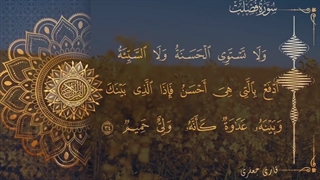 سُورَةُ فُصِّلَتْ
وَلَا تَسْتَوِى ٱلْحَسَنَةُ وَلَا ٱلسَّيِّئَةُ
ٱدْفَعْ بِٱلَّتِى هِىَ أَحْسَنُ فَإِذَا ٱلَّذِى بَيْنَكَ
وَبَيْنَهُۥ عَدَٰوَةٌ كَأَنَّهُۥ وَلِىٌّ حَمِيمٌ ٣٤